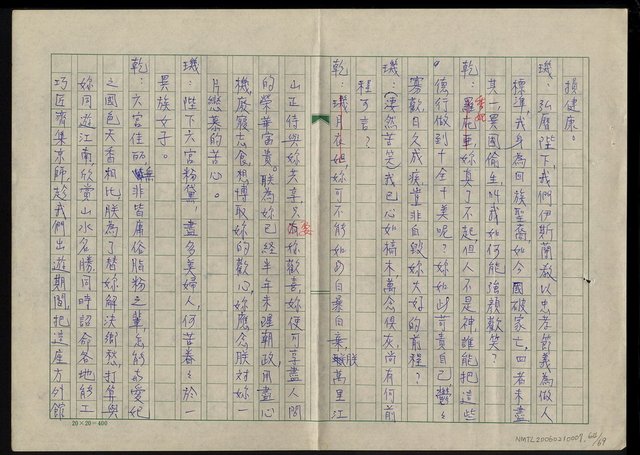 損健康。
璣：弘曆陛下，我們伊斯蘭教以忠孝節義為做人
標準，我身為回族聖裔，如今國破家亡，四者未盡
其一，異國偷生，叫我如何能強顏歡笑？
乾：香妃妳真了不起，但人不是神，誰能把這些
德行做到十全十美呢？妳如此苛責自己，鬱鬱
寡歡，日久成疾，豈非自毀妳大好的前程？
璣：（淒然苦笑）我已心如槁木，萬念俱灰，尚有何前
程可言？
乾：璣月在妃妳可不能如此自暴自棄，朕萬里江
山正待與妳共享，只要妳歡喜，妳便可享盡人間
的榮華富貴。朕為妳已經半年未理朝政，用盡心
機，廢寢忘食，想博取妳的歡心，妳應念朕對妳一
片戀慕的苦心。
璣：陛下六宮粉黛，盡多美婦人，何苦眷眷於一
異族女子。
乾：六宮佳麗無非皆庸俗脂粉之輩，怎能和愛妃
之國色天香相比，朕為了替妳解決鄉愁，打算與
妳同遊江南欣賞山水名勝，同時詔命各地能工
巧匠齊集京師，趁我們出遊期間，把這座方外館
20×20=400
NMTL20060210009, 60/69